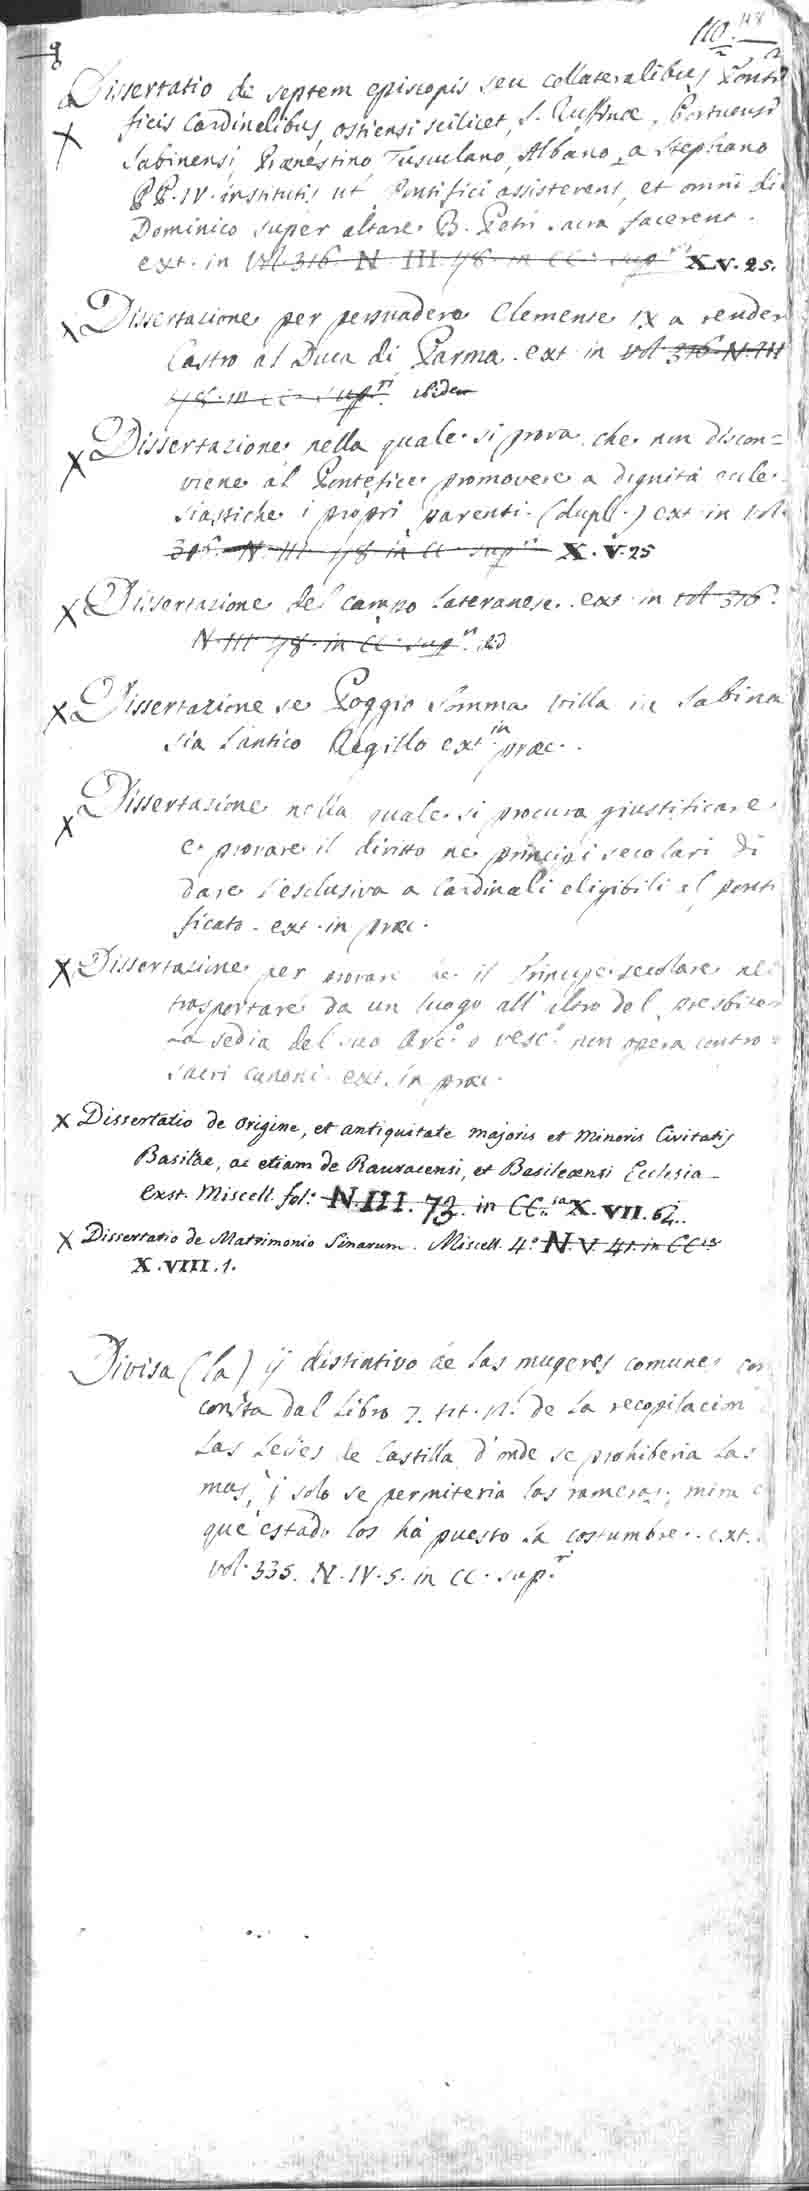 110. 118
Dissertatio de septem episcopis seu collateralibus Ponti
ficis Cardinalibus, ostiensi scilicet, S. Ruffinæ, Portuensi
Sabinensi, Prænestino, Tusculano, Albano, a Stephano
PP. IV. institutis ut Pontifici assisterent, et omni die
Dominico super altare B. Petri sacra facerent.
ext. in vol. 316. N. III. 48. in CC. sup.ri X.V.25.
Dissertazione per persuadere Clemente IX a render
Castro al Duca di Parma. ext in vol 316. N. III
48. in CC. sup.ri ibidem
Dissertazione nella quale si prova che non discon=
viene al Pontefice promovere a dignità eccle-
siastiche i propri parenti. (dupl.) ext in vol.
316. N. III 48 in CC. sup.ri X.V.25
Dissertazione del campo Lateranese. ext. in vol 316.
N. III 48. in CC. sup.ri
Dissertazione se Poggio Somma villa in Sabina
sia l'antico Regillo ext. in præc.
Dissertazione nella quale si procura giustificare
e provare il diritto ne principi secolari di
dare l'esclusiva a Cardinali eligibili al ponti
ficato. ext. in præc.
Dissertazione per provare che il Principe secolare nel
trasportare da un luogo all' altro del presbiter
la sedia del suo Arc.o o vesc.o non opera contro
sacri canoni. ext. in præc.
Dissertatio de origine, et antiquitate majoris et minoris Civitatis
Basileæ, ac etiam de Rauracensi, et Basileænsi Ecclesia
exst. Miscell. fol. N.III.73. in CC. X.VII.64.
Dissertatio de Matrimonio Sinarum. Miscell. 4.o N.V.41. in CC
X.VIII.1.
Divisa (la) ÿ distintivo de las mugeres comunes
consta dal Libro 7. tit. de la recopilacion
Las Leÿes de Castilla, d'onde se prohiberia las
mas, ÿ solo se permiteria las rameras; mira
que estado los há puesto la costumbre. ext.
vol. 335. N. IV. 5. in CC. sup.ri